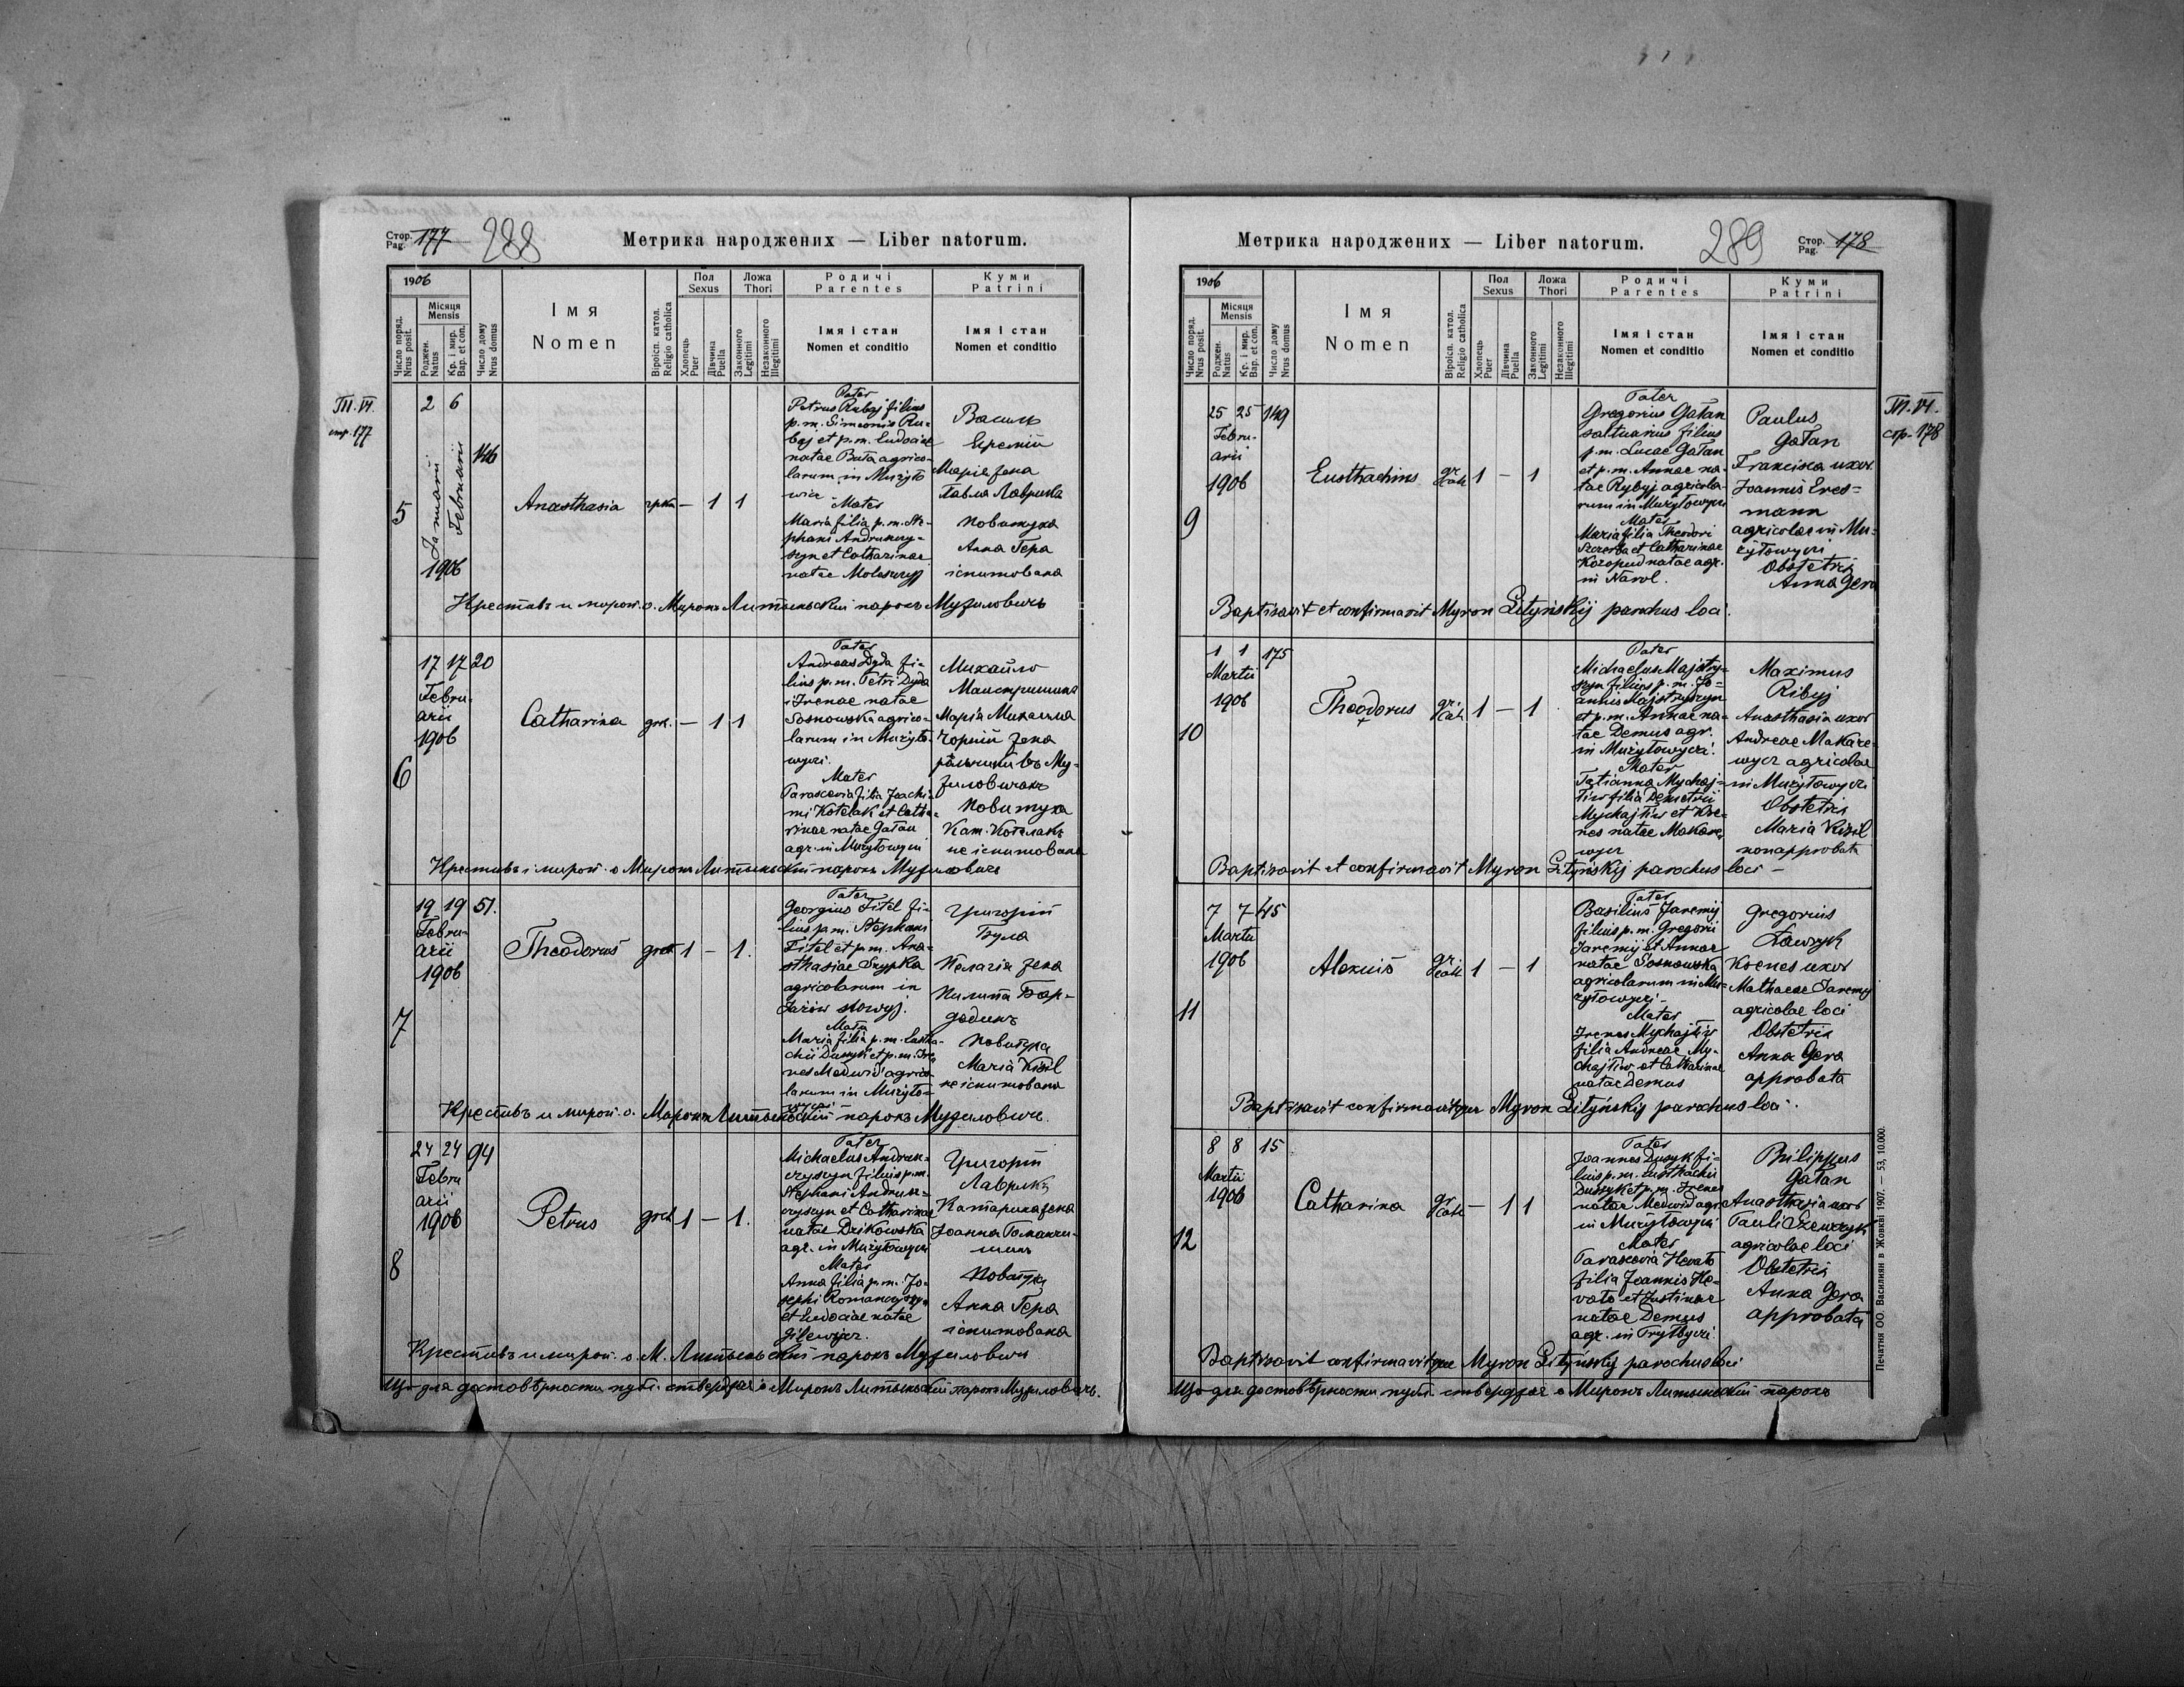 Стор. Pag. 177 288
Метрика народжених — Liber natorum.
1906
Число поряд. Nrus posit.
Місяця Mensis
Роджен. Natus
Кр. і мир. Bap. et con.
Число дому Nrus domus
Імя Nomen
Віроісп. катол. Religio catholica
Пол Sexus
Хлопець Puer
Дівчина Puella
Ложа Thori
Законного Legitimi
Незаконного Illegitimi
Родичі Parentes
Імя і стан
Nomen et conditio
Куми Patrini
Імя і стан
Nomen et conditio
стр. 177
5
2 6
Januarii
Februarii
1906
146
Anasthasia
1 1
Pater
Petrus Rubyj filius
p.m. Simeonis Ru-
byj et p.m. Eudociae
natae Buta agrico-
larum in Mużyło-
Mater
Maria filia p.m. Ste-
phani Andruszczy-
szyn et Catharinae
natae
Василь
Еремій
Марія жена
Павла Лаврика
Повитуха
Анна Гера
іспитована
Крестивъ и миров. о. Миронъ Литыньскій парохъ Мужиловичъ
6
17 17 20
Febru-
arii
1906
Catharina
grk.
— 1 1
Pater
Andreas Dyda fi-
lius p.m. Petri Dyda
i Irenae natae
Sosnowska agrico-
larum in Mużyło-
wyczi.
Mater
Parascevia filia Joachi-
mi Kotelak et Catha-
rinae natae Gatan
agr. in Mużyłowyczi
Михайло
Маистришинъ
Марія Михаила
Чорній жена
рôльники въ Му-
жиловичахъ
Повитуха
Кат. Котелакъ
не іспитована
Крестивъ і миров. о Миронъ Литыньскій парохъ Мужиловичъ
7
19 19 51.
Febru-
arii
1906
Theodorus
1 — 1.
Pater
Georgius Fitel fi-
lius p.m. Stephani
Fitel et p.m. Ana-
sthasiae Szypka
agricolarum in
Jazów nowyj.
Mater
Maria filia p.m. Eusta-
chii Dusyk et p.m. Ire-
nes Medwid agrico-
larum in Mużyło-
wyczi
Григорій
Була
Пелагія жена
Пилипа Бор-
Повитуха
Maria Kizil
не іспитована
Крестивъ и миров. о. Миронъ Литыньскій парохъ Мужиловичъ.
8
24 24 94
Febru
arii
1906
Petrus
1 — 1.
Pater
Michaelus Andrusz-
czyszyn filius p.m.
Stephani Andrusz-
czyszyn et Catharinae
natae Dzikowska
agr. in Mużyłowyczi
Mater
Anna filia p.m. Jo-
sephi Romanczyszyn
et Eudociae natae
Gilewycz.
Григорій
Лаврикъ
Катарина жена
Іоанна Романчи-
шинъ
Повитуха
Анна Гера
іспитована
Крестивъ и миров. о М. Литыньскій парохъ Мужиловичъ
Що для достовѣрности публ. ствержає о Миронъ Литыньскій парохъ Мужиловичъ.
Метрика народжених — Liber natorum.
289 Стор. Pag. 178
1906
Число поряд. Nrus posit.
Місяця Mensis
Роджен. Natus
Кр. і мир. Bap. et con.
Число дому Nrus domus
Імя Nomen
Віроісп. катол. Religio catholica
Пол Sexus
Хлопець Puer
Дівчина Puella
Ложа Thori
Законного Legitimi
Незаконного Illegitimi
Родичі Parentes
Імя і стан
Nomen et conditio
Куми Patrini
Імя і стан
Nomen et conditio
стр. 178
9
25 25 149
Febru-
arii
1906
Eusthachius
gr. cath
1 — 1
Pater
Gregorius Gatan
saltuarius filius
p.m. Lucae Gatan
et p.m. Annae na-
tae Rybyj agricola-
rum in Mużyłowyczi
Mater
Maria filia Theodori
Szczerba et Catharinae
Kozopud natae agr.
in Narol.
Paulus
Gatan
Francisca uxor
Joannis Eres-
mann
agricolae in Mu-
żyłowyczi
Obstetrix
Anna Gera
Baptisavit et confirmavit Myron Lityńskij parochus loci.
10
1 1 175
Martii
1906
Theodorus
gr. cath.
1 — 1
Pater
Michaelus Majstry-
szyn filius p.m. Jo-
annis Majstryszyn
et p.m. Annae na-
tae Demus agr.
in Mużyłowyczi.
Mater
Tatianna Mychaj-
liw filia Demetrii
Mychajliw et Xe-
nes natae Makare-
wycz
Maximus
Ribyj
Anasthasia uxor
Andreae Makare-
wycz agricolae
in Mużyłowyczi
Obstetrix
Maria Kizil
nonapprobata
Baptisavit et confirmavit Myron Lityńskij parochus loci —
11
7 7 45
Martii
1906
Alexius
gr. cath
1 — 1
Pater
Basilius Jaremij
filius p.m. Gregorii
Jaremij et Annae
natae Sosnowska
agricolarum in Mu-
żyłowyczi —
Mater
Irenes Mychajliw
filia Andreae My-
chajliw et Catharinae
natae Demus
Gregorius
Ławryk
Xenes uxor
Mathaeae Jaremij
agricolae loci
Obstetrix
Anna Gera
approbata
Baptisavit confirmavitque Myron Lityńskij parochus loci.
12
8 8 15
Martii
1906
Catharina
gr cath
— 1 1
Pater
Joannes Dusyk fi-
lius p.m. Eusthachii
Dusyk et p.m. Irenes
natae Medwid agr.
in Mużyłowyczi
Mater
Parascevia Howato
filia Joannis Ho-
wato et Justinae
natae Demus
agr. in Tryłbyczi.
Philippus
Gatan
Anasthasia uxor
Pauli Szewczyk
agricolae loci
Obstetrix
Anna Gera
approbata
Baptisavit confirmavitque Myron Lityńskij parochus loci
Що для достовѣрности публ. ствержає о Миронъ Литыньскій парохъ
Печатня ОО. Василиян в Жовкві 1907. — 53, 10.000.